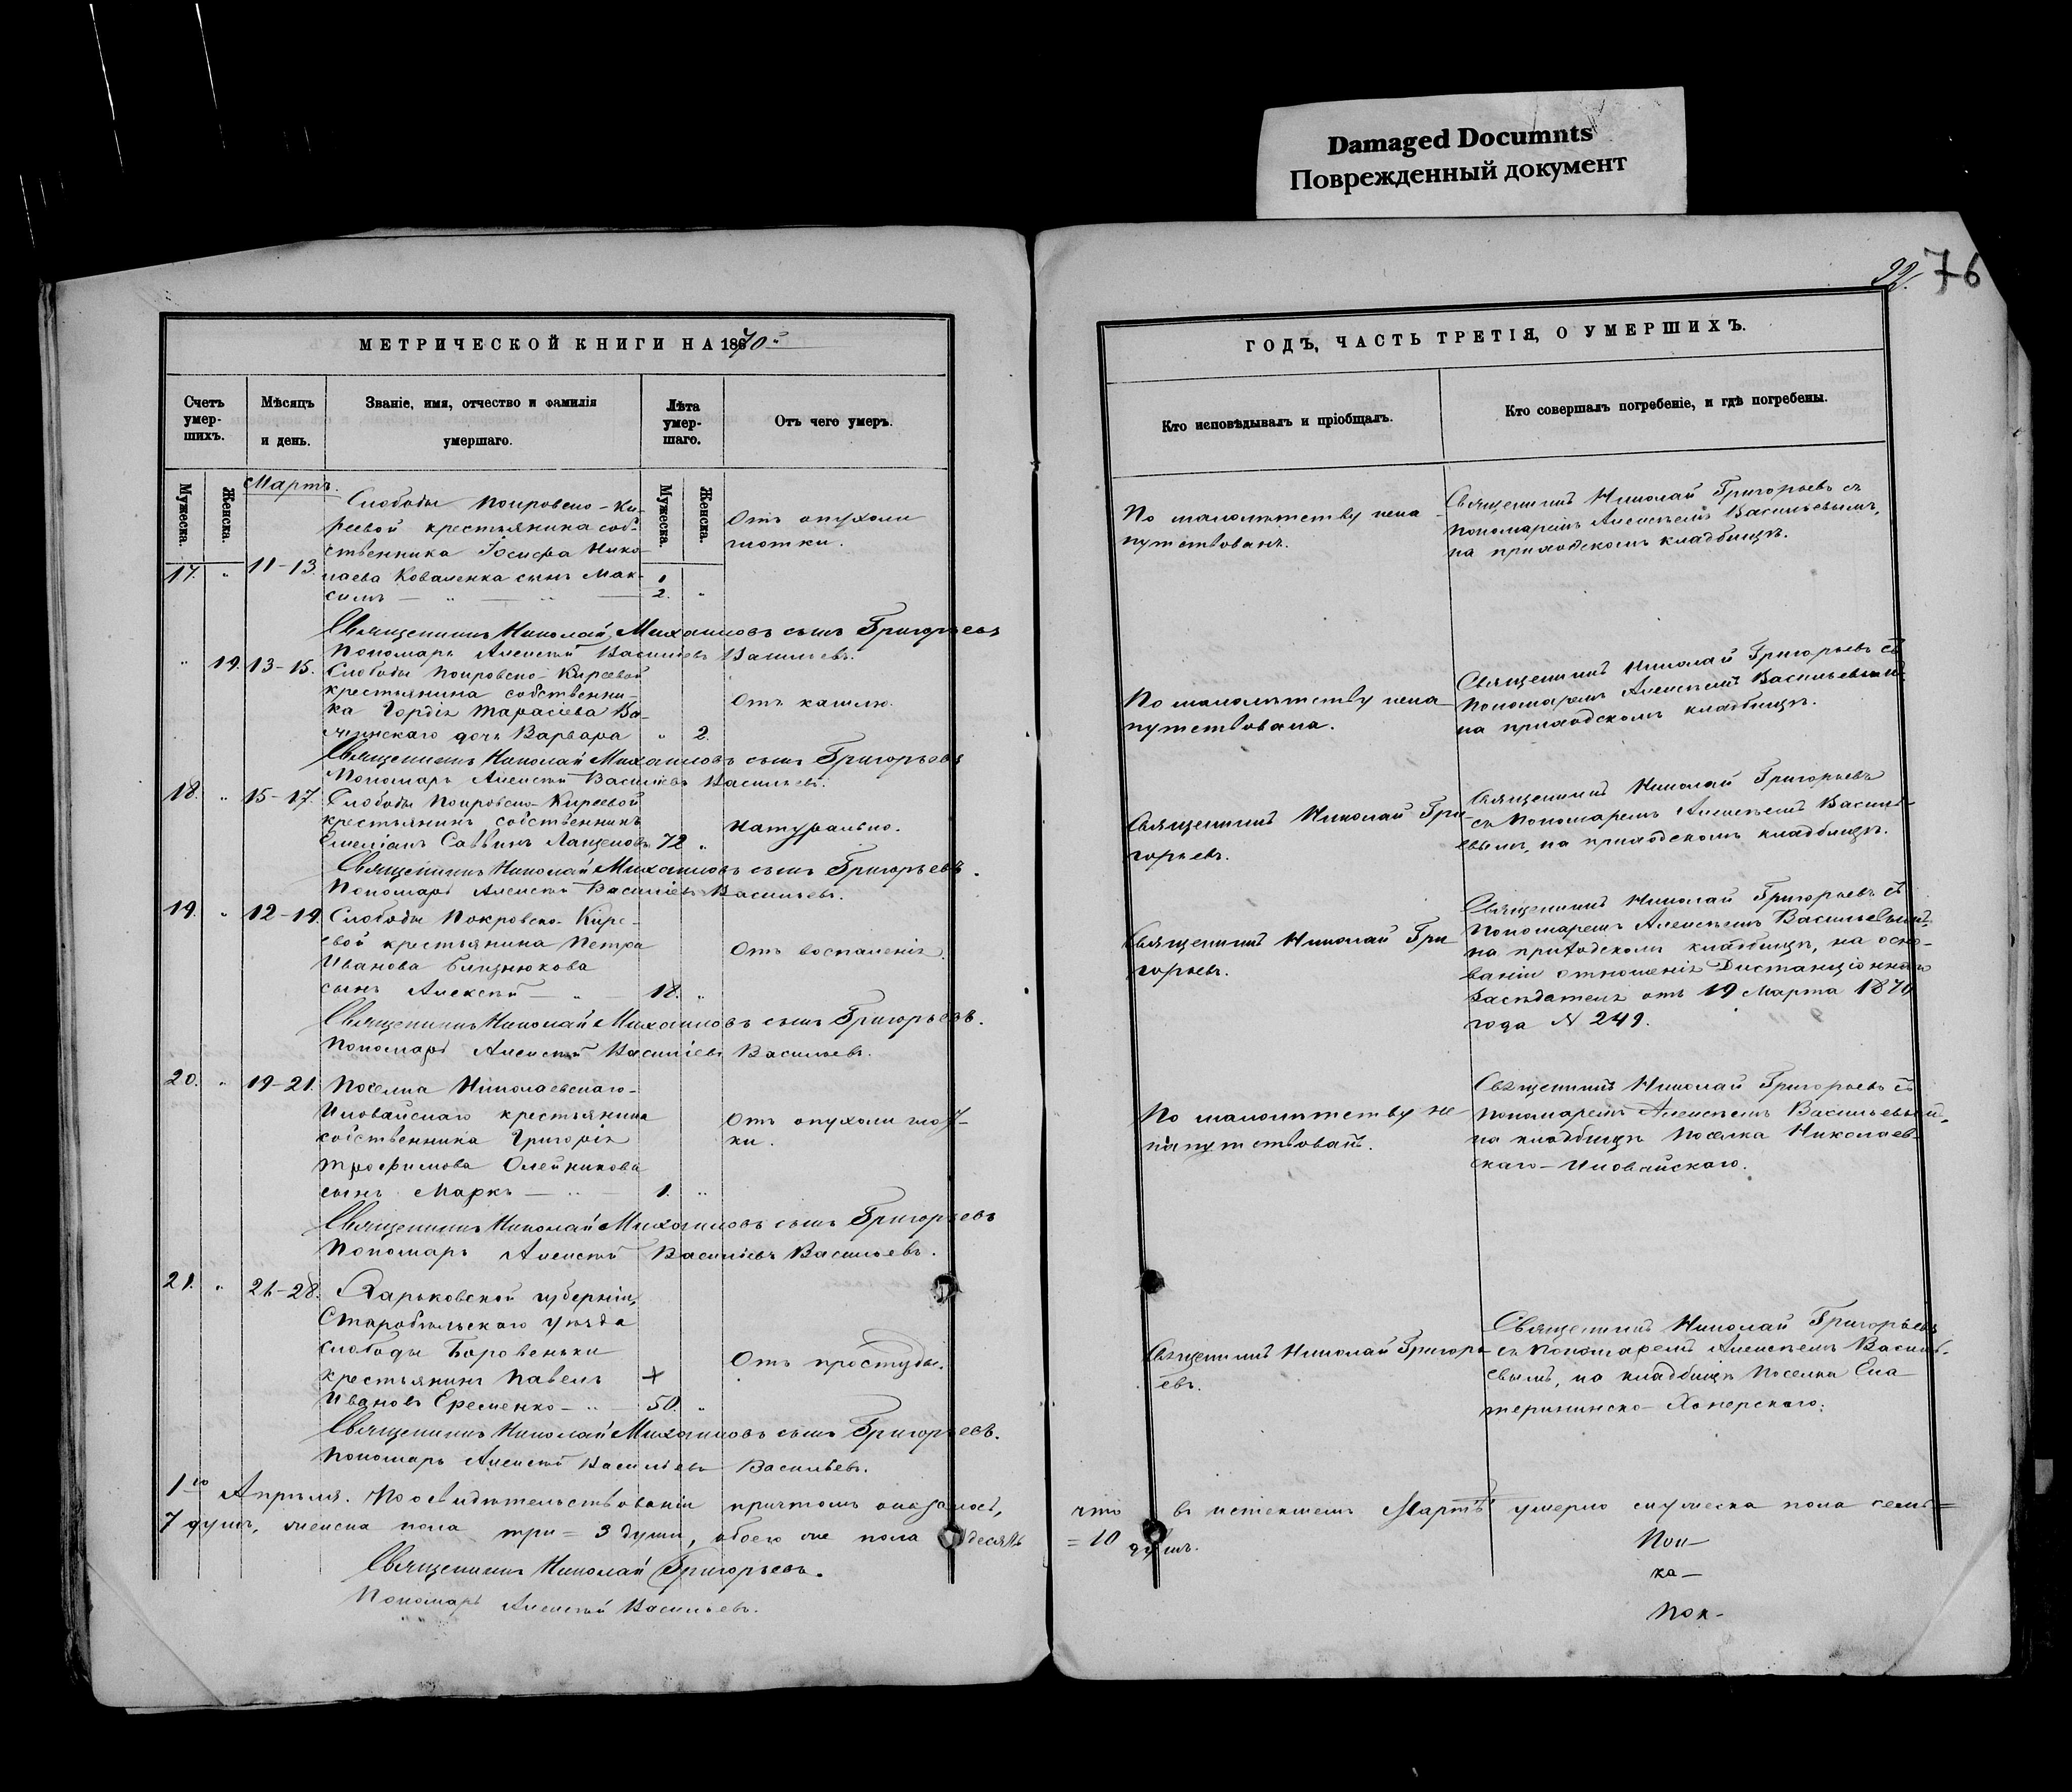 Damaged Documnts
Поврежденный документ
22. 76
МЕТРИЧЕСКОЙ КНИГИ НА 1870й
Счетъ умер-шихъ.
Мѣсяцъ и день.
Званіе, имя, отчество и фамилія умершаго.
Лѣта умер-шаго.
Отъ чего умеръ.
Мужеска.
Женска.
Мужеска.
Женска.
Мартъ.
Слободы Покровско-Ки-
реевой крестьянина соб-
ственника Іосифа Нико-
17. " 11-13. лаева Коваленка сынъ Мак-
симъ — " — " — 1/2. "
Отъ опухоли
глотки.
Священникъ Николай Михаиловъ сынъ Григорьевъ
Пономарь Алексѣй Василіевъ Васильевъ.
" 19. 13-15. Слободы Покровско-Киреевой
крестьянина собственни-
ка Гордія Тарасіева
дочь Варвара " 2.
Отъ кашлю.
Священникъ Николай Михаиловъ сынъ Григорьевъ
Пономарь Алексѣй Василіевъ Васильевъ.
18. " 15-17. Слободы Покровско-Киреевой
крестьянинъ собственникъ
Емеліанъ Саввинъ 72 "
Натурально.
Священникъ Николай Михаиловъ сынъ Григорьевъ.
Пономарь Алексѣй Василіевъ Васильевъ.
19. " 12-19. Слободы Покровско-Кире-
евой крестьянина Петра
Иванова Близнюкова
сынъ Алексѣй — " — 18. "
Отъ воспаленія.
Священникъ Николай Михаиловъ сынъ Григорьевъ.
Пономарь Алексѣй Василіевъ Васильевъ.
20. " 19-21. Поселка Николаевскаго-
Иловайскаго крестьянина
собственника Григорія
Трофимова Олейникова
сынъ Маркъ — " — 1. "
Отъ опухоли глот-
ки.
Священникъ Николай Михаиловъ сынъ Григорьевъ
Пономарь Алексѣй Василіевъ Васильевъ.
21. " 26-28. Харьковской губерніи,
Старобѣльскаго уѣзда
слободы Боровеньки
крестьянинъ Павелъ +
Ивановъ Еременко — " — 50. "
Отъ простуды.
Священникъ Николай Михаиловъ сынъ Григорьевъ.
Пономарь Алексѣй Василіевъ Васильевъ.
ГОДЪ, ЧАСТЬ ТРЕТІЯ, О УМЕРШИХЪ.
Кто исповѣдывалъ и пріобщалъ.
Кто совершалъ погребеніе, и гдѣ погребены.
По малолѣтству нена-
путствованъ.
Священникъ Николай Григорьевъ съ
пономаремъ Алексѣемъ Васильевымъ,
на приходскомъ кладбищѣ.
По малолѣтству нена-
путствована.
Священникъ Николай Григорьевъ съ
Пономаремъ Алексѣемъ Васильевымъ
на приходскомъ кладбищѣ.
Священникъ Николай Гри-
горьевъ.
Священникъ Николай Григорьевъ
съ Пономаремъ Алексѣемъ Василь-
евымъ, на приходскомъ кладбищѣ.
Священникъ Николай Гри-
горьевъ.
Священникъ Николай Григорьевъ съ
Пономаремъ Алексѣемъ Васильевымъ,
на приходскомъ кладбищѣ, на осно-
ваніи отношенія Дистанціоннаго
Засѣдателя отъ 19 Марта 1870
года N 249.
По малолѣтству не-
напутствованъ.
Священникъ Николай Григорьевъ съ
пономаремъ Алексѣемъ Васильевымъ,
на кладбищѣ Поселка Николаев-
скаго-Иловайскаго.
Священникъ Николай Григорь-
евъ.
Священникъ Николай Григорьевъ
съ Пономаремъ Алексѣемъ Василь-
евымъ, на кладбищѣ Поселка Ека-
терининско-Хоперскаго.
1го Апрѣля. По освидѣтельствованіи причтомъ оказалось, что въ истекшемъ Мартѣ умерло мужеска пола семь =
7 душъ, женска пола три = 3 души, обоего же пола десять = 10 душъ.
Священникъ Николай Григорьевъ.
Пономарь Алексѣй Васильевъ.
Пок-
ка-
Пок-